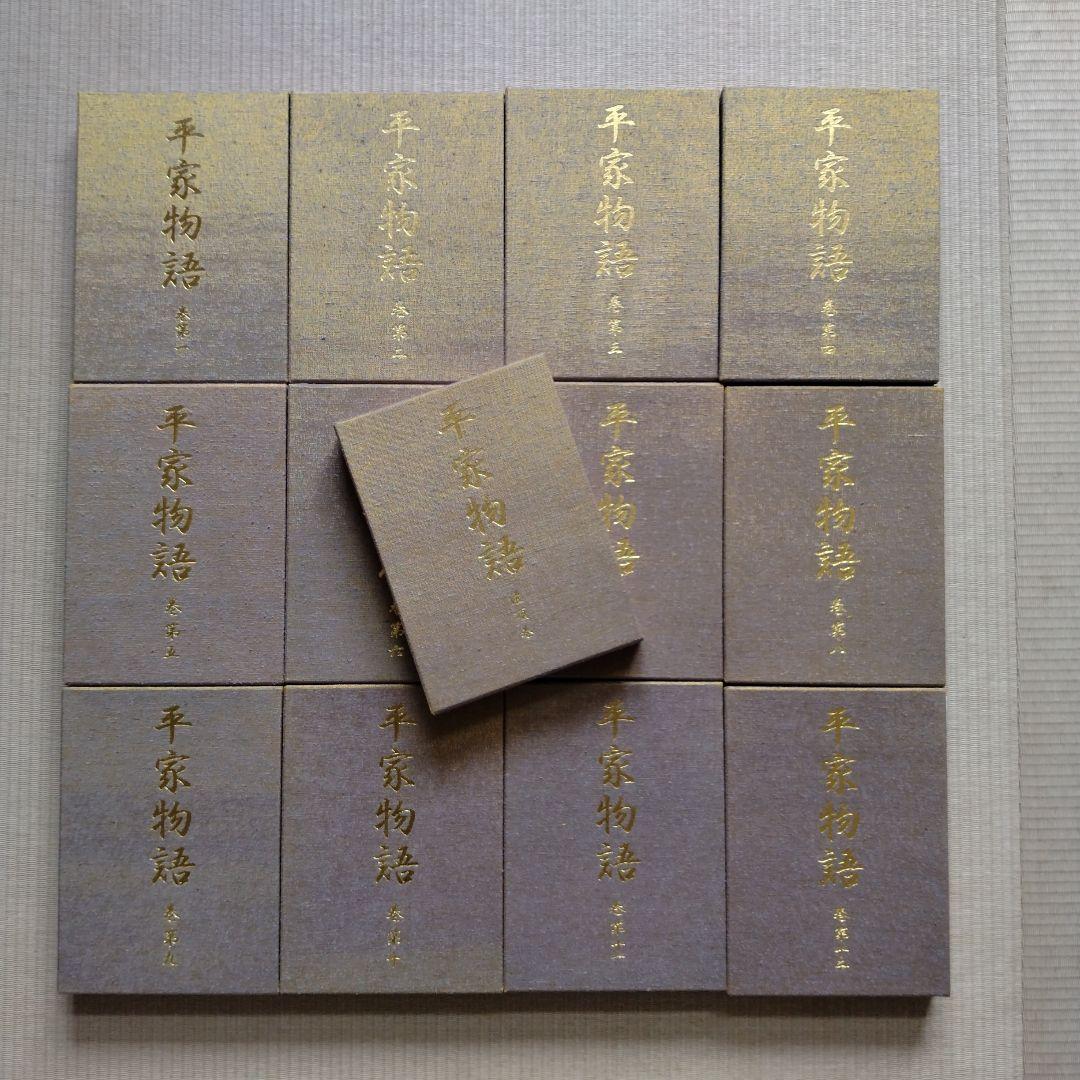 平家物語 巻第一
平家物語 巻第二
平家物語 巻第三
平家物語 巻第四
平家物語 巻第五
巻第六
平家物語 灌頂巻
平家物語
平家物語 巻第八
平家物語 巻第九
平家物語 巻第十
平家物語 巻第十一
平家物語 巻第十二